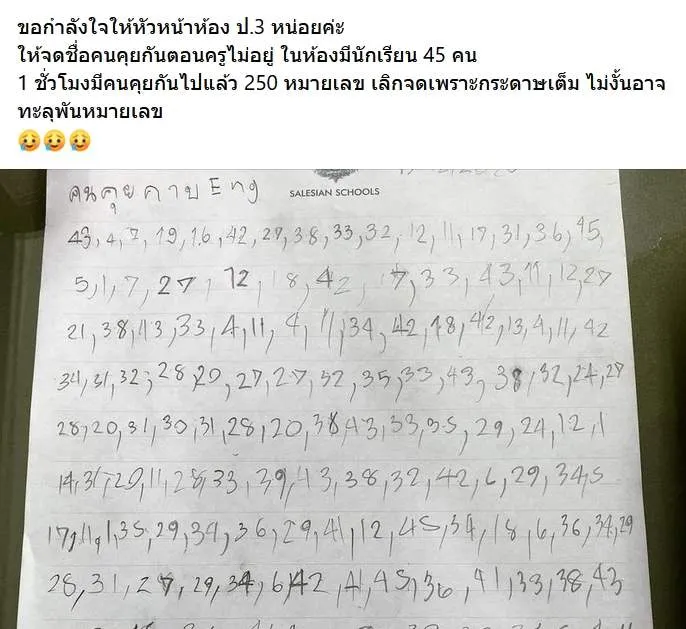 ขอกำลังใจให้หัวหน้าห้อง ป.3 หน่อยค่ะ
ให้จดชื่อคนคุยกันตอนครูไม่อยู่ ในห้องมีนักเรียน 45 คน
1 ชั่วโมงมีคนคุยกันไปแล้ว 250 หมายเลข เลิกจดเพราะกระดาษเต็ม ไม่งั้นอาจ
ทะลุพันหมายเลข
😥😥😥
คนคุยคาบ Eng
SALESIAN SCHOOLS
43, 4, 7, 19, 16, 42, 27, 38, 33, 32, 12, 11, 17, 31, 36, 45,
5, 1, 7, 27, 12, 18, 42, 17, 33, 43, 11, 12, 27
21, 38, 43, 33, 4, 11, 4, 11, 34, 42, 18, 42, 13, 4, 11, 42
34, 31, 32, 28, 20, 27, 27, 32, 35, 33, 43, 38, 32, 24, 27
28, 20, 31, 30, 31, 28, 20, 38, 43, 33, 35, 29, 24, 12, 1
14, 31, 20, 11, 28, 33, 39, 43, 38, 32, 42, 6, 29, 34, 5
17, 11, 1, 35, 29, 39, 36, 29, 41, 12, 45, 34, 18, 6, 36, 34, 29
28, 31, 27, 29, 34, 6, 42, 41, 45, 36, 41, 33, 38, 43